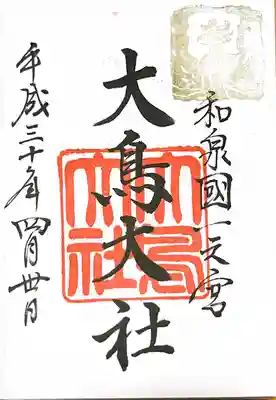 和泉國一之宮
大鳥大社
平成三十年四月廿日
大鳥大社